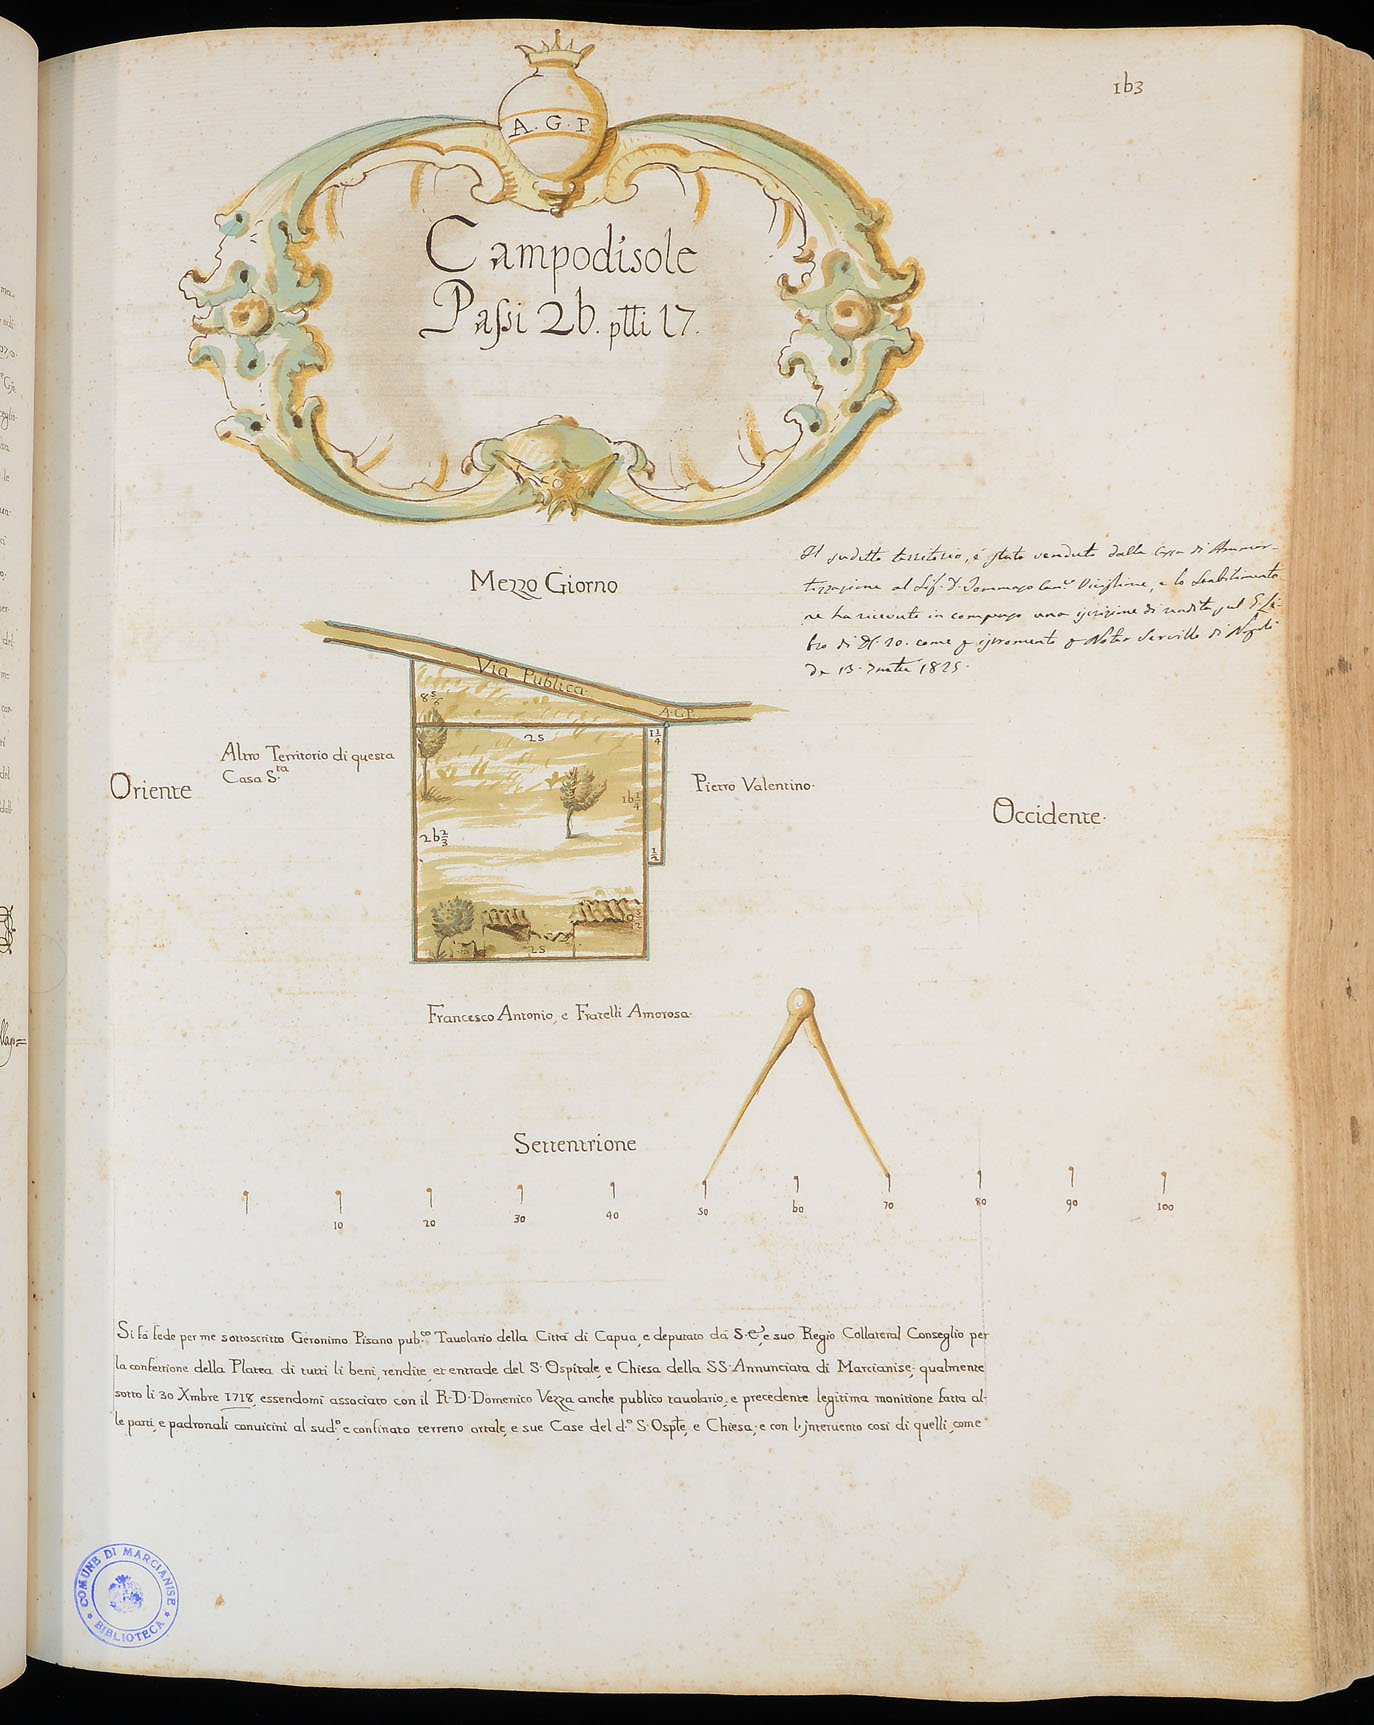 163
A. G. P.
Campodisole
Passi 26. ptti 17.
Il sudetto territorio, è stato venduto dalla Cassa di Ammor-
tizzazione al Sig.r D. Tommaso Can.co e lo Stabilimento
ne ha ricevuto in compenso una iscrizione di rendita sul G. Li-
bro di D. 20. come istromento Notar Servillo di Napoli
de 13. 1825.
Mezzo Giorno
Via Publica
A.G.P.
8 5/6
25
1 1/4
16 1/4
26 2/3
1/2
9 5/12
25
Altro Territorio di questa
Casa S.ta
Oriente
Pietro Valentino.
Occidente.
Francesco Antonio, e Fratelli Amorosa.
Settentrione
10 20 30 40 50 60 70 80 90 100
Si fà fede per me sottoscritto Geronimo Pisano pub.co Tauolario della Città di Capua, e deputato dà S. E., e suo Regio Collateral Conseglio per
la confettione della Platea di tutti li beni, rendite, et entrade del S. Ospitale, e Chiesa della SS. Annunciata di Marcianise; qualmente
sotto li 30 Xmbre 1718, essendomi associato con il R. D. Domenico Vezza anche publico tauolario, e precedente legitima monitione fatta al-
le parti, e padronali conuicini al sud.o, e confinato terreno ortale, e sue Case del d.o S. Osptle, e Chiesa; e con l'interuento così di quelli, come
COMUNE DI MARCIANISE
* BIBLIOTECA *